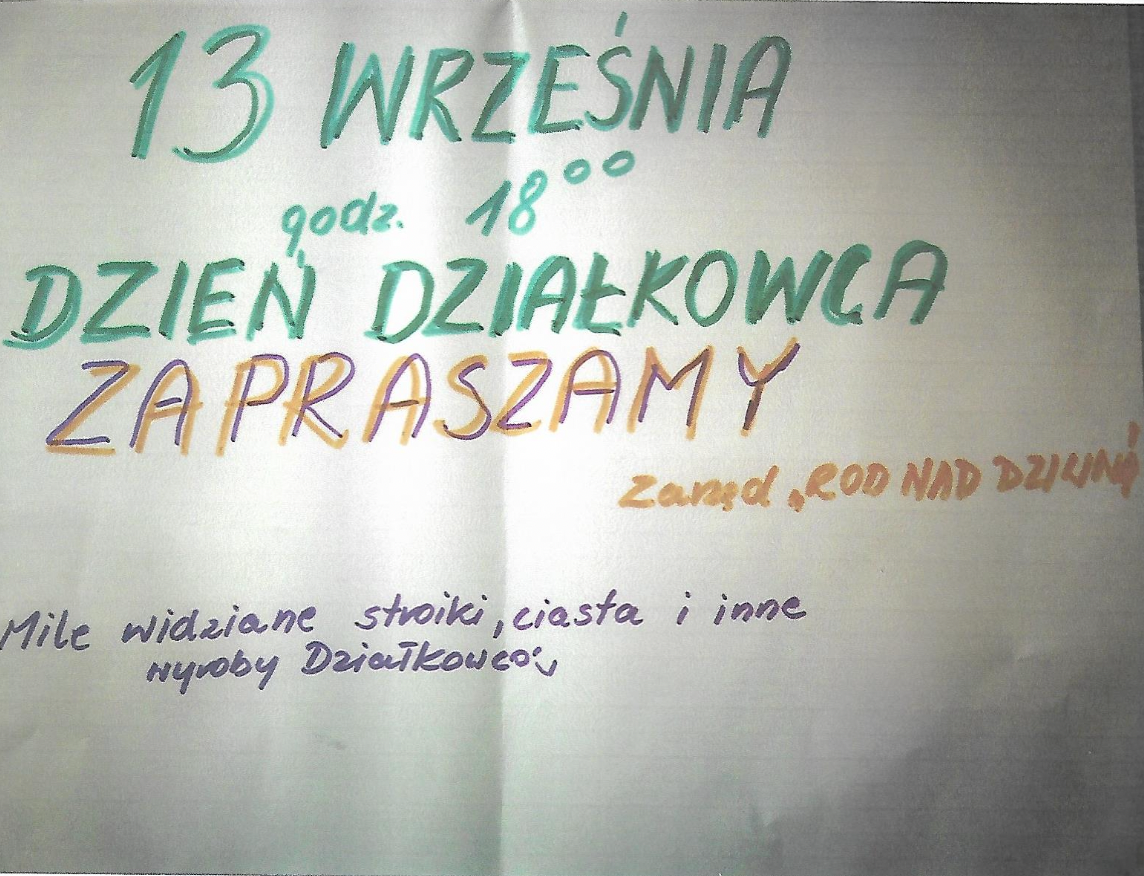 13 WRZEŚNIA
godz. 18⁰⁰
DZIEŃ DZIAŁKOWCA
ZAPRASZAMY
Zarząd „ROD NAD DZIKUNĄ
Mile widziane stroiki, ciasta i inne
wyroby Działkowców